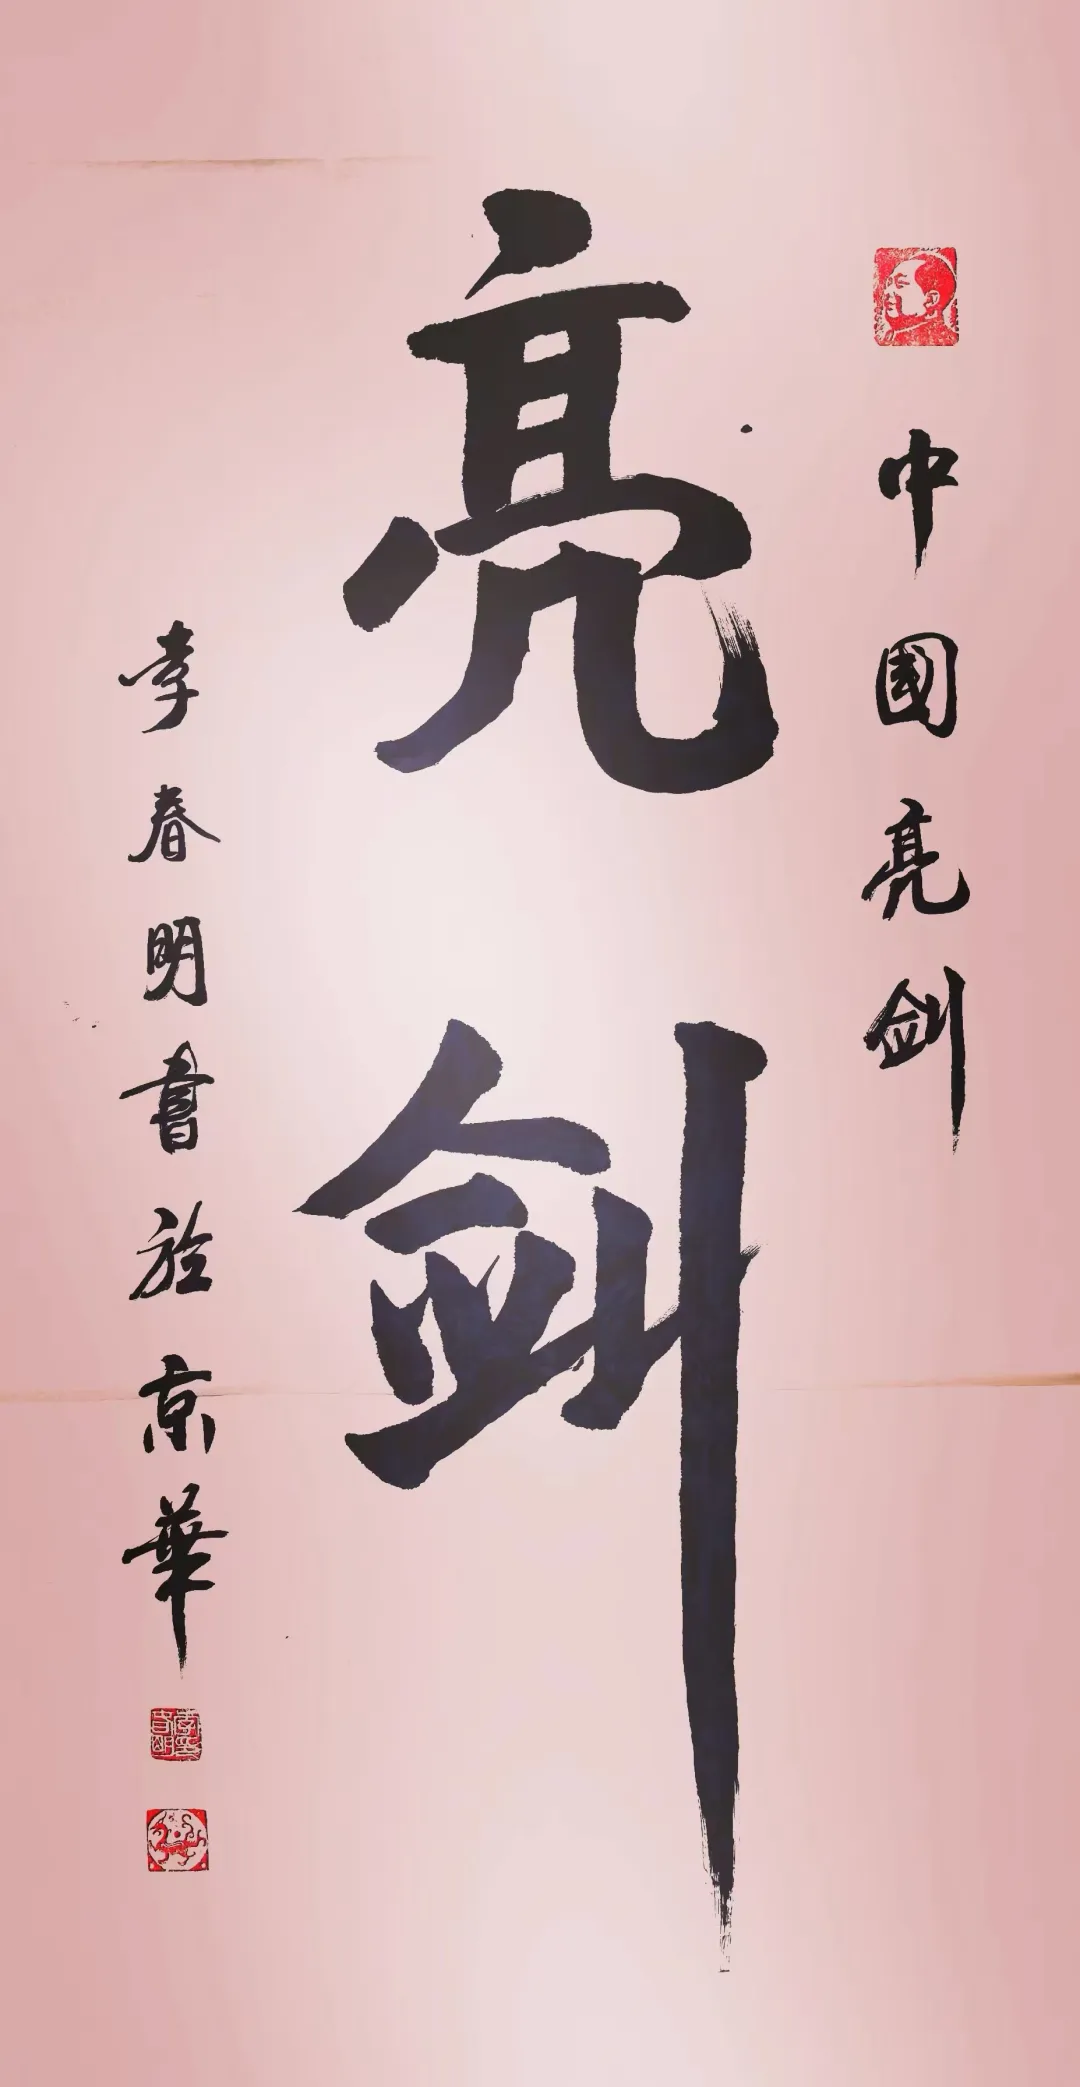 中國亮剑
亮剑
李春明書於京華